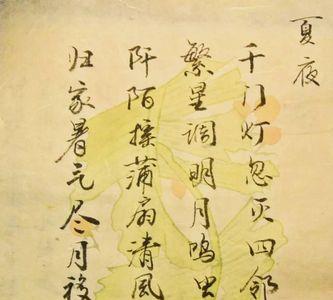 夏夜
千门灯忽灭四邻
繁星调明月鸣虫
阡陌摇蒲扇清风
归家暑气尽月移